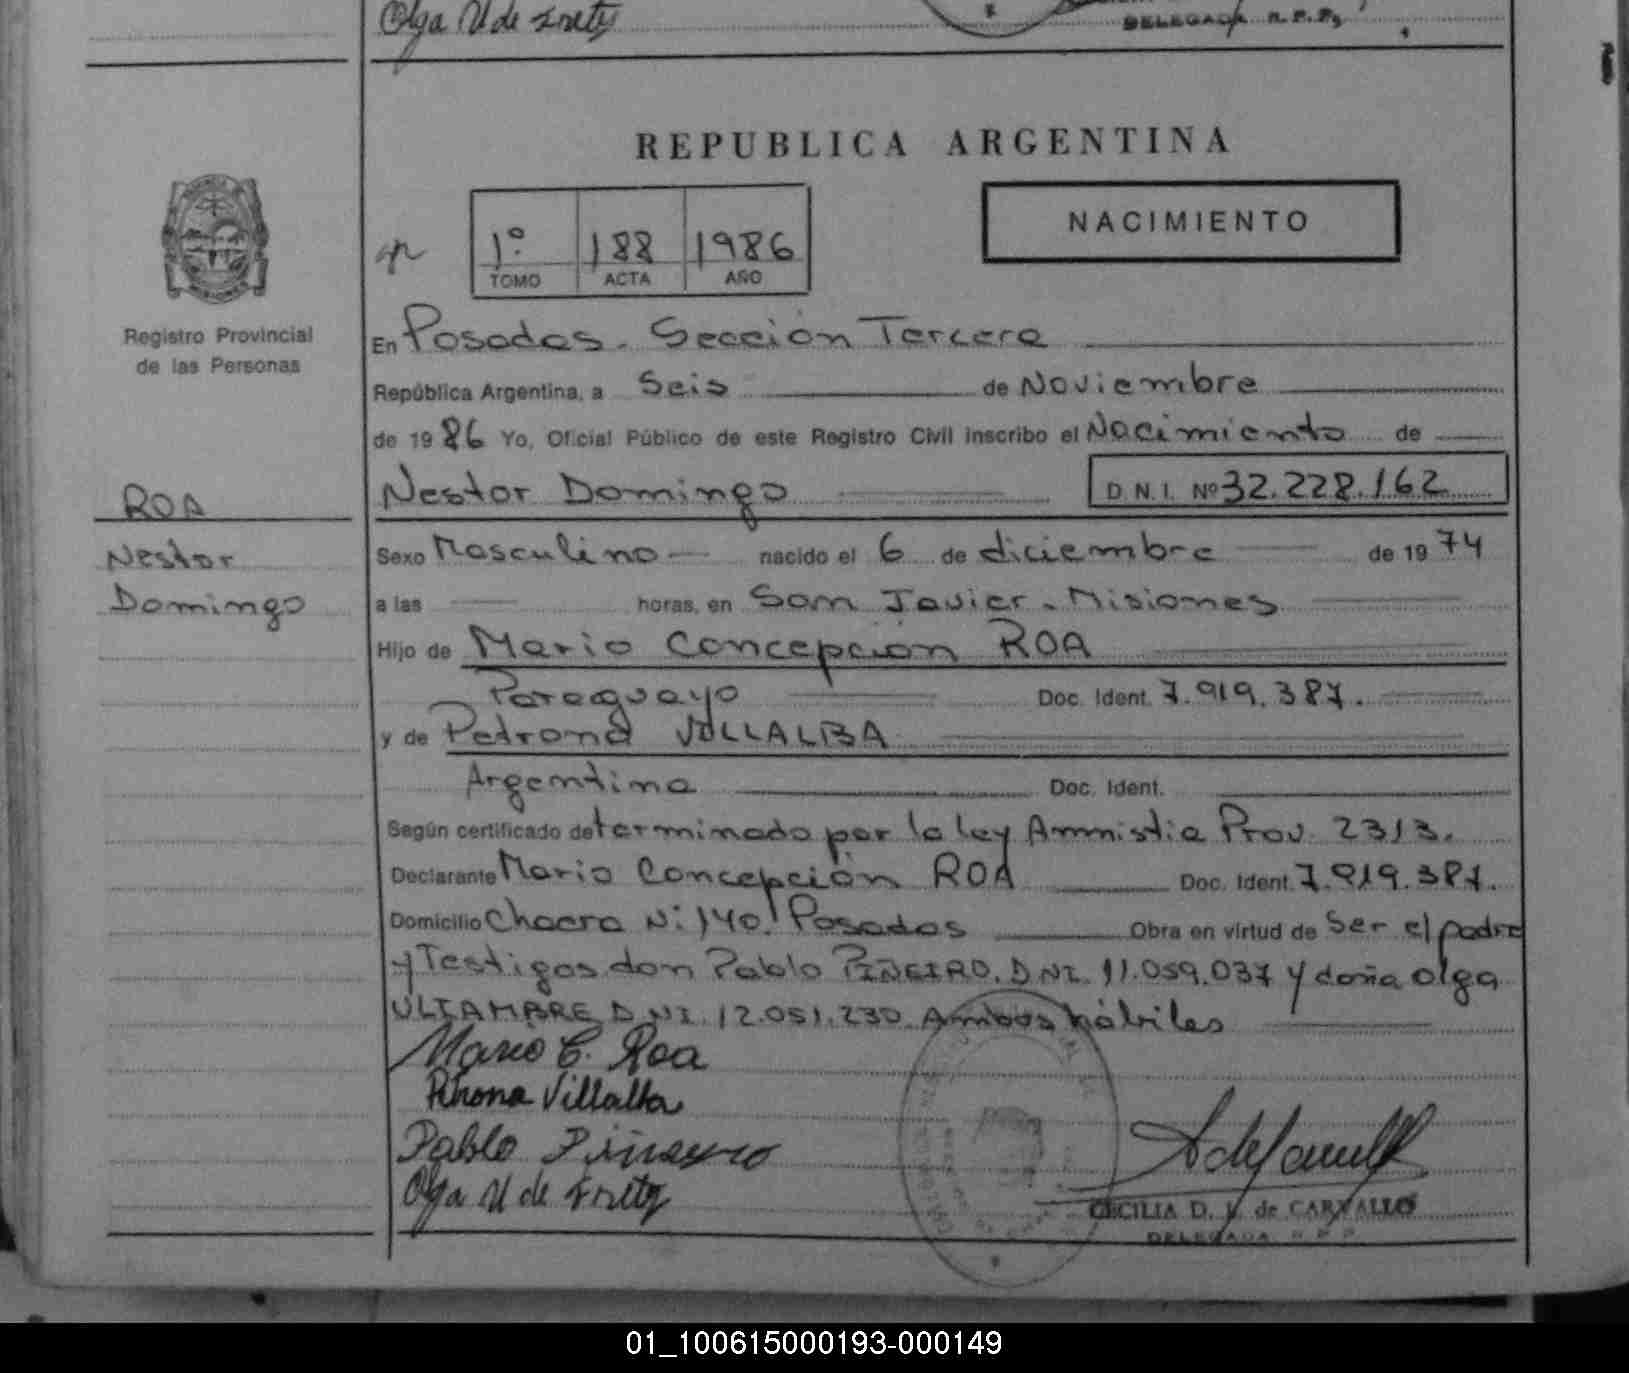 Olga U de Fretez
DELEGADA R.P.P.
REPUBLICA ARGENTINA
1º 188 1986
TOMO ACTA AÑO
NACIMIENTO
Registro Provincial
de las Personas
En Posadas. Sección Tercera
República Argentina, a Seis de Noviembre
de 1986 Yo, Oficial Público de este Registro Civil inscribo el Nacimiento de
Nestor Domingo D N. I. Nº 32.228.162
ROA
Nestor
Domingo
Sexo Masculino nacido el 6 de diciembre de 1974
a las horas, en San Javier. Misiones
Hijo de Mario Concepcion ROA
Paraguayo Doc. Ident. 7.919.387.
y de Petrona VILLALBA
Argentina Doc. Ident.
Según certificado determinado por la ley Amnistia Prov. 2313.
Declarante Mario Concepción ROA Doc. Ident. 7.919.387.
Domicilio Chacra N: 140. Posadas Obra en virtud de Ser el padre
y Testigos don Pablo PIÑEIRO. DNI. 11.059.037 y doña Olga
ULIAMBRE DNI. 12.051.230. Ambos hábiles
Mario C. Roa
Villalba
Pablo Piñeyro
Olga U de Fretez
CECILIA D. de CARVALLO
DELEGADA R.P.P.
01_100615000193-000149